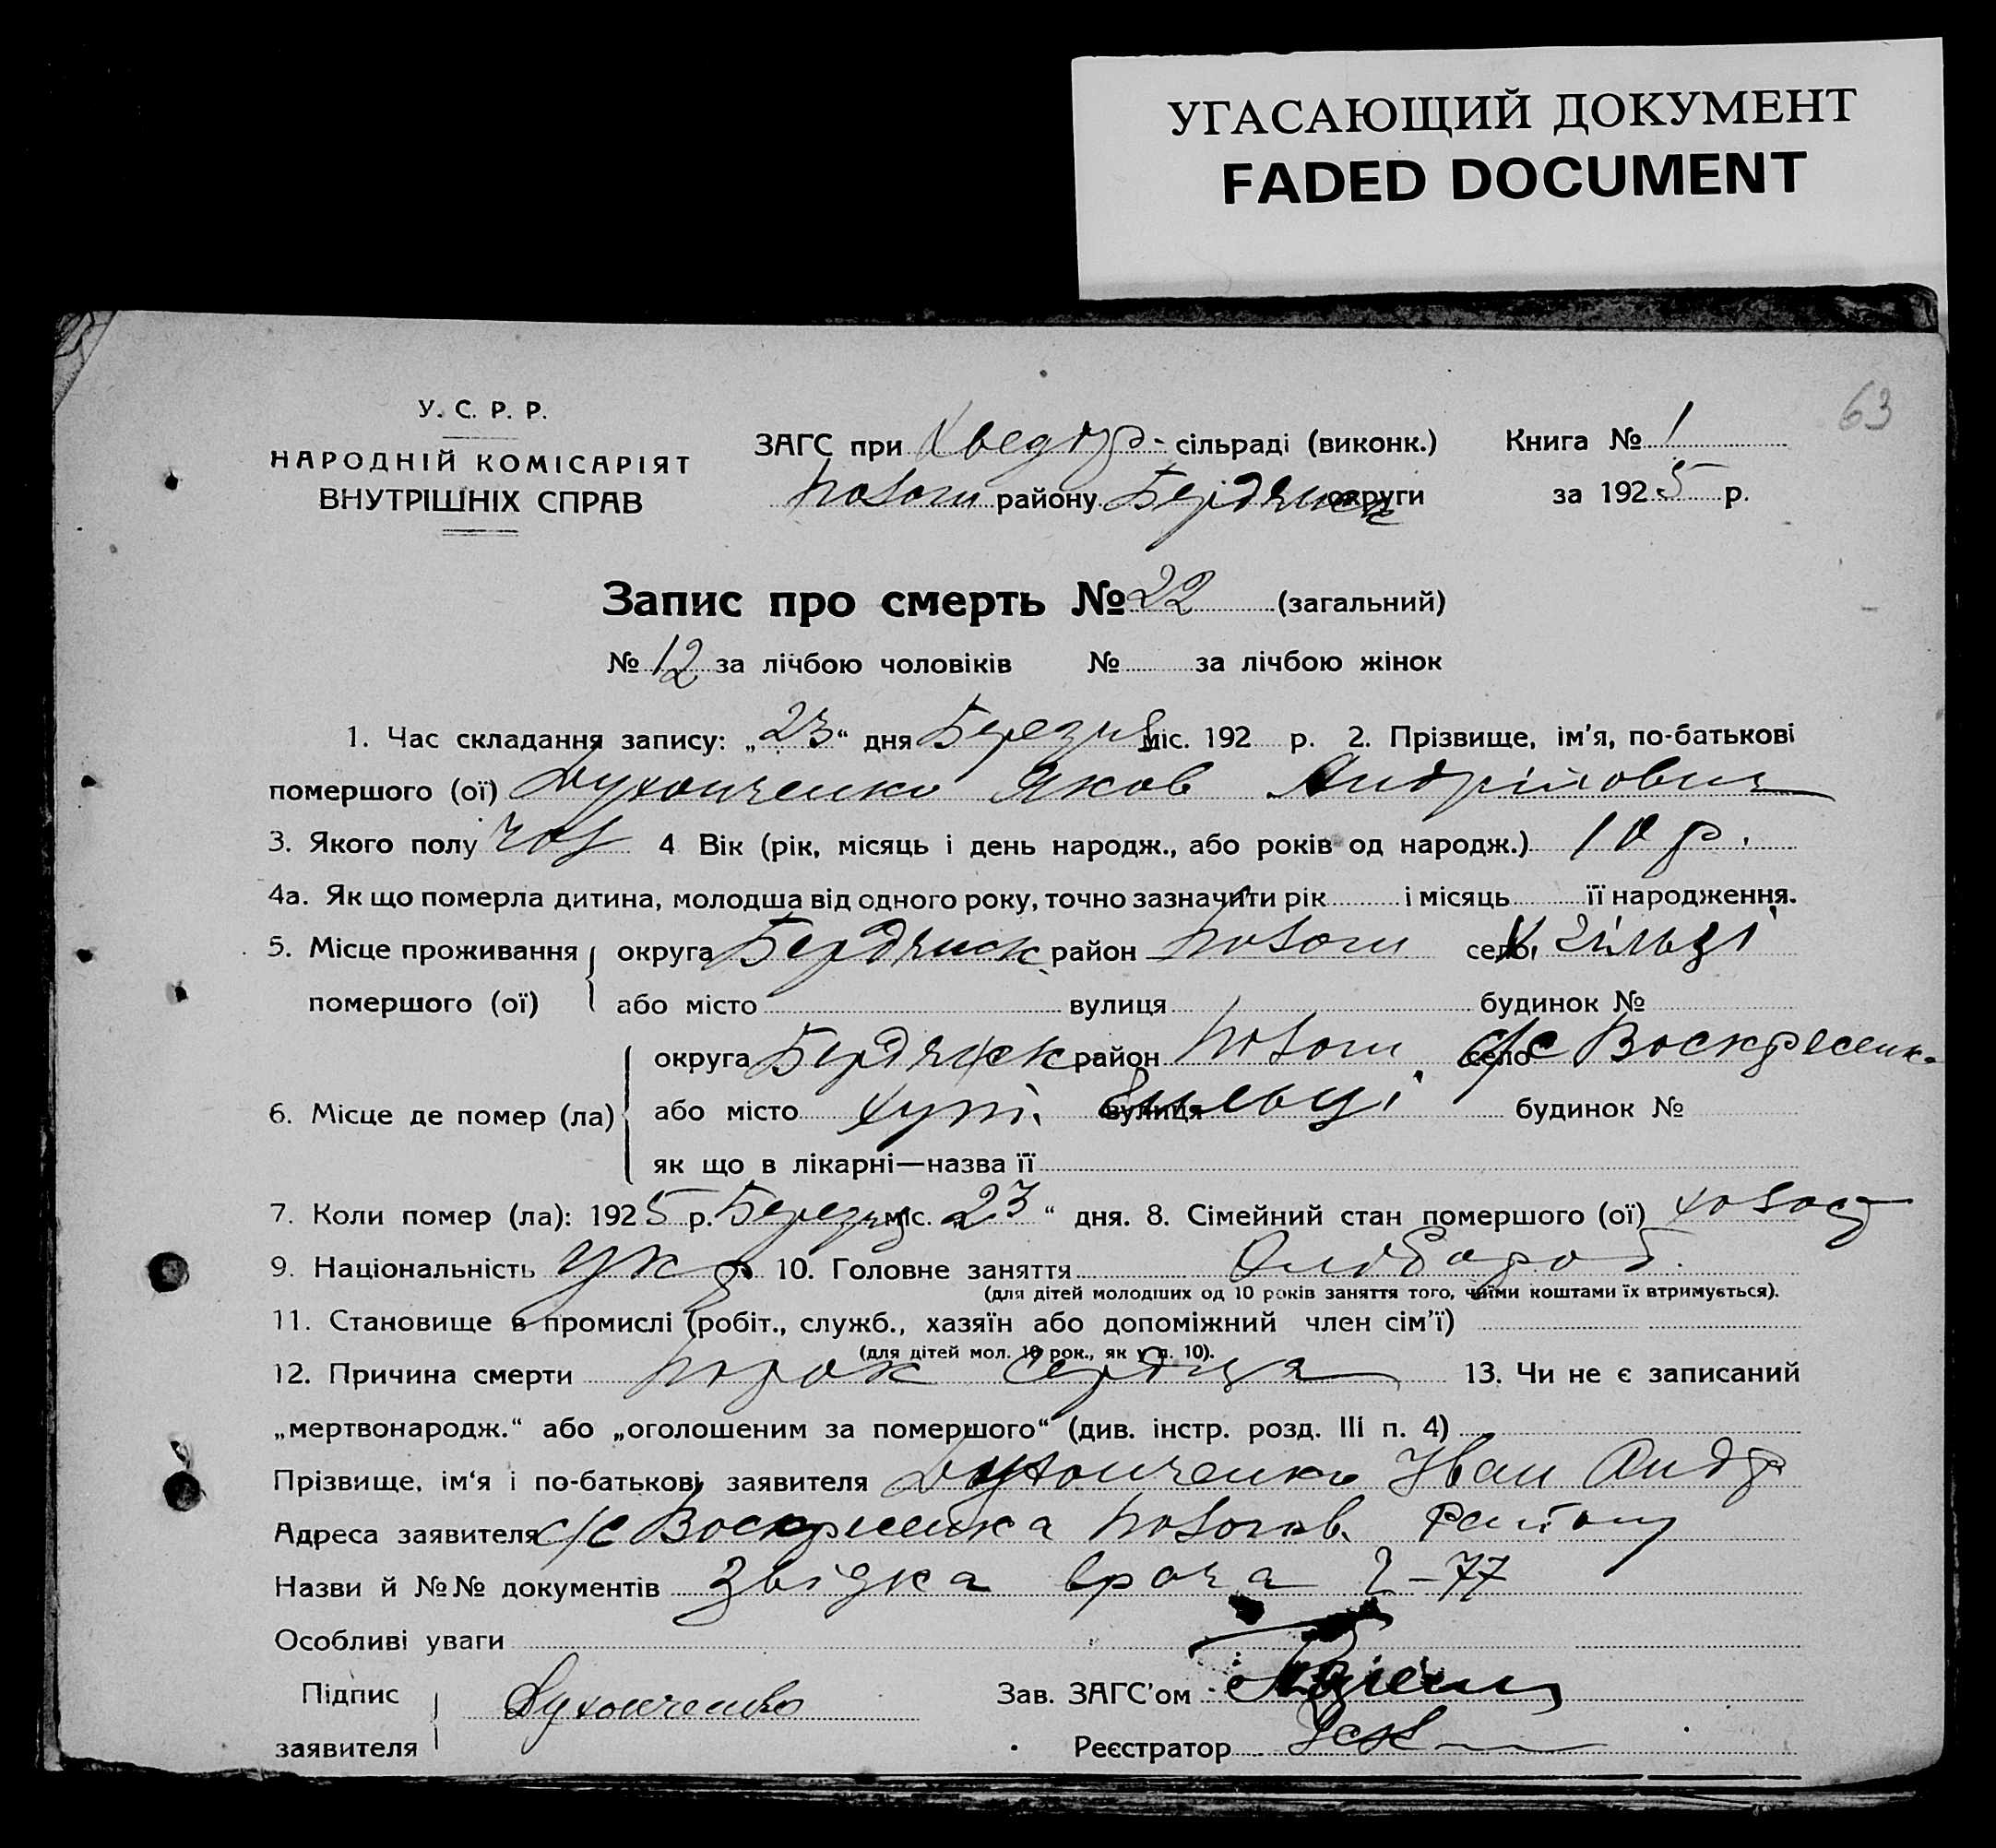 УГАСАЮЩИЙ ДОКУМЕНТ
FADED DOCUMENT
63
У. С. Р. Р.
НАРОДНІЙ КОМІСАРІЯТ
ВНУТРІШНІХ СПРАВ
ЗАГС при Хведор- сільраді (виконк.)
Полог району Бердянск округи
Книга № 1
за 1925 р.
Запис про смерть № 22 (загальний)
№ 12 за лічбою чоловіків № за лічбою жінок
1. Час складання запису: „23“ дня Березня міс. 192 р. 2. Прізвище, ім'я, по-батькові
помершого (ої) Духонченко Яков Андрійович
3. Якого полу чол 4 Вік (рік, місяць і день народж., або років од народж.) 10 р.
4а. Як що померла дитина, молодша від одного року, точно зазначити рік і місяць її народження.
5. Місце проживання округа Бердянск район Пологи село
помершого (ої) або місто вулиця будинок №
округа Бердянск район Пологи село с/с Воскресенк.
6. Місце де помер (ла) або місто хут. вулиця будинок №
як що в лікарні—назва її
7. Коли помер (ла): 1925 р. Березня міс. „23“ дня. 8. Сімейний стан помершого (ої) холост
9. Національність укр 10. Головне заняття
(для дітей молодших од 10 років заняття того, чиїми коштами їх втримується).
11. Становище в промислі (робіт., служб., хазяїн або допоміжний член сім'ї)
(для дітей мол. 10 рок., як у п. 10).
12. Причина смерти порок сердця 13. Чи не є записаний
„мертвонародж.“ або „оголошеним за помершого“ (див. інстр. розд. III п. 4)
Прізвище, ім'я і по-батькові заявителя Духонченко Іван Андр
Адреса заявителя с/с Воскресенка Пологов. району
Назви й №№ документів Звідка врача 2-77
Особливі уваги
Підпис заявителя Духонченко
Зав. ЗАГС'ом
Реєстратор